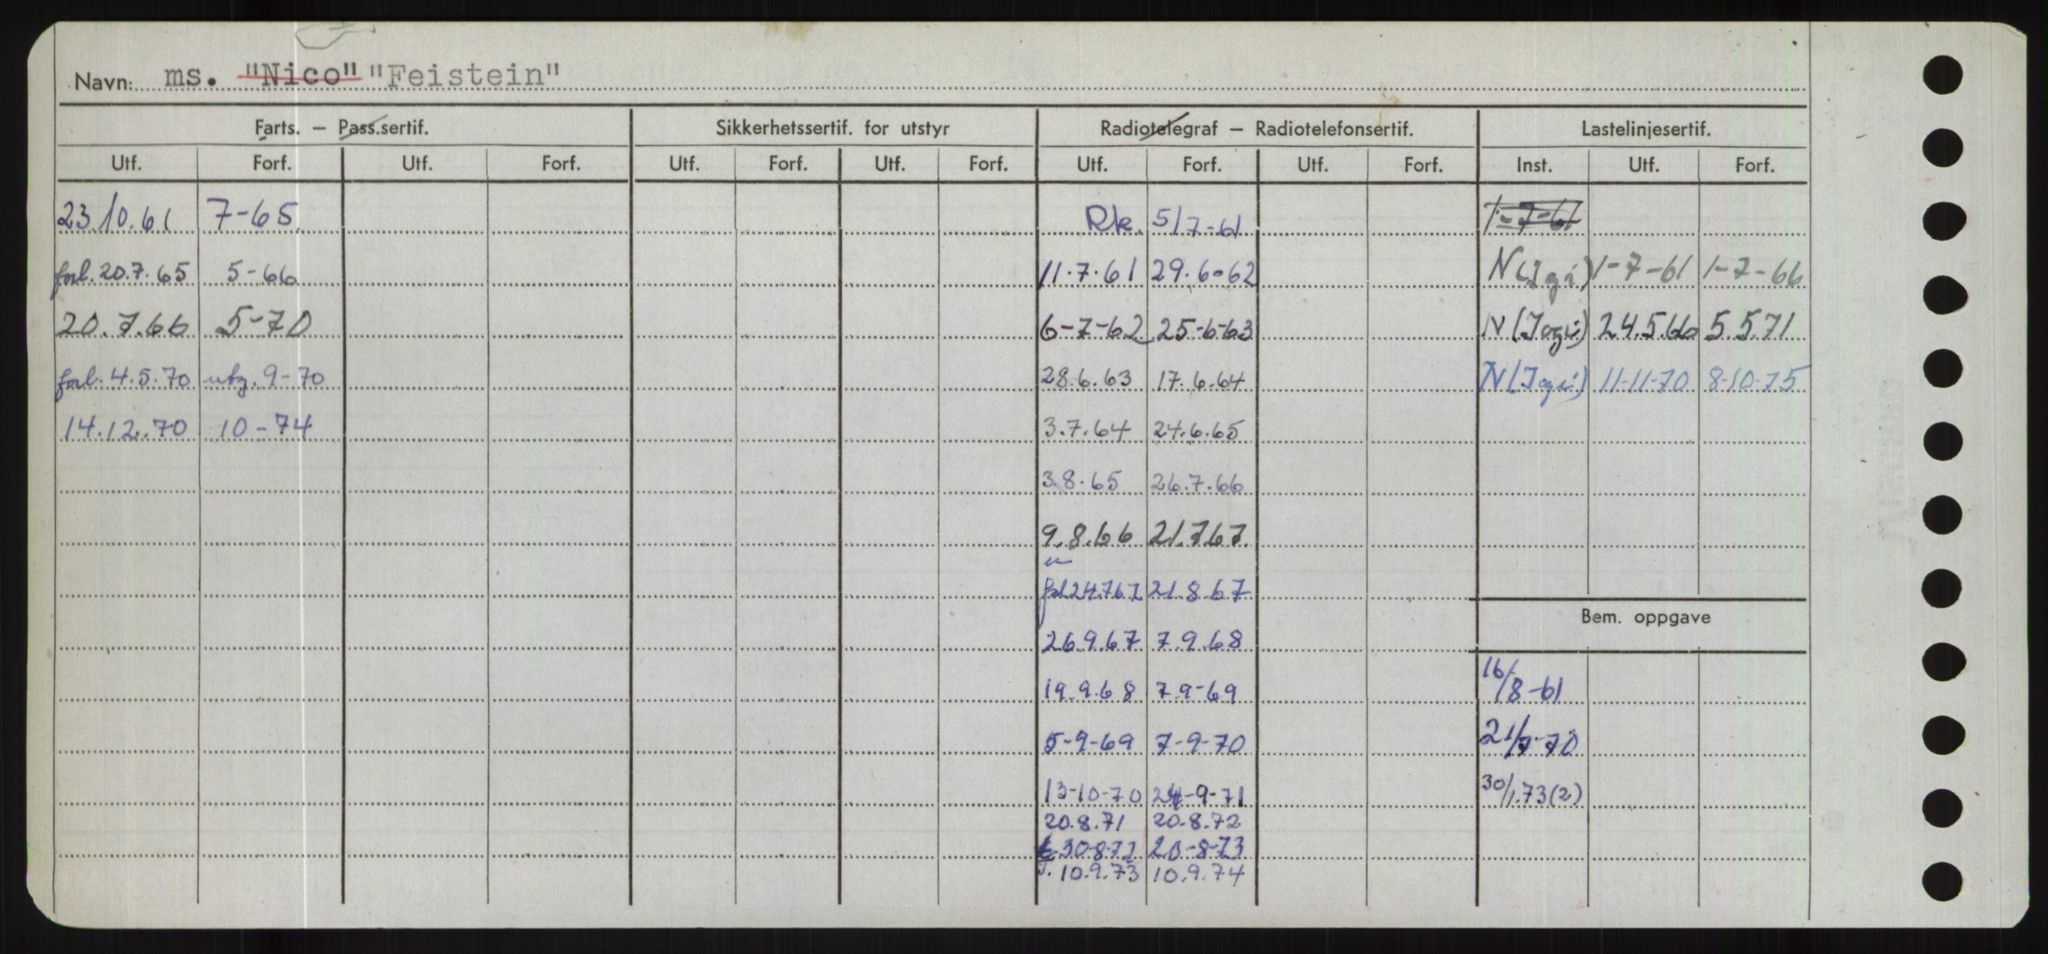 Navn: ms. "Nico" "Feistein"
Farts. — Pass.sertif. Sikkerhetssertif. for utstyr Radiotelegraf — Radiotelefonsertif. Lastelinjesertif.
Utf. Forf. Utf. Forf. Utf. Forf. Utf. Forf. Utf. Forf. Utf. Forf. Inst. Utf. Forf.
23.10.61 7-65. Rk. 5/7-61 1-7-61
forl. 20.7.65 5-66 11.7.61 29.6-62 N 1-7-61 1-7-66
20.7.66 5-70 6-7-62 25-6-63 N 24.5.66 5.5.71
forl. 4.5.70 utg. 9-70 28.6.63 17.6.64 N 11-11-70 8-10-75
14.12.70 10-74 3.7.64 24.6.65
3.8.65 26.7.66
9.8.66 21.7.67
24.7.67 21.8.67
26.9.67 7.9.68
19.9.68 7.9-69
5-9-69 7-9-70
13-10-70 24-9-71
20.8.71 20-8-72
30-8-72 20-8-73
10.9.73 10.9.74
Bem. oppgave
16/8-61
21/7-70
30/1.73(2)